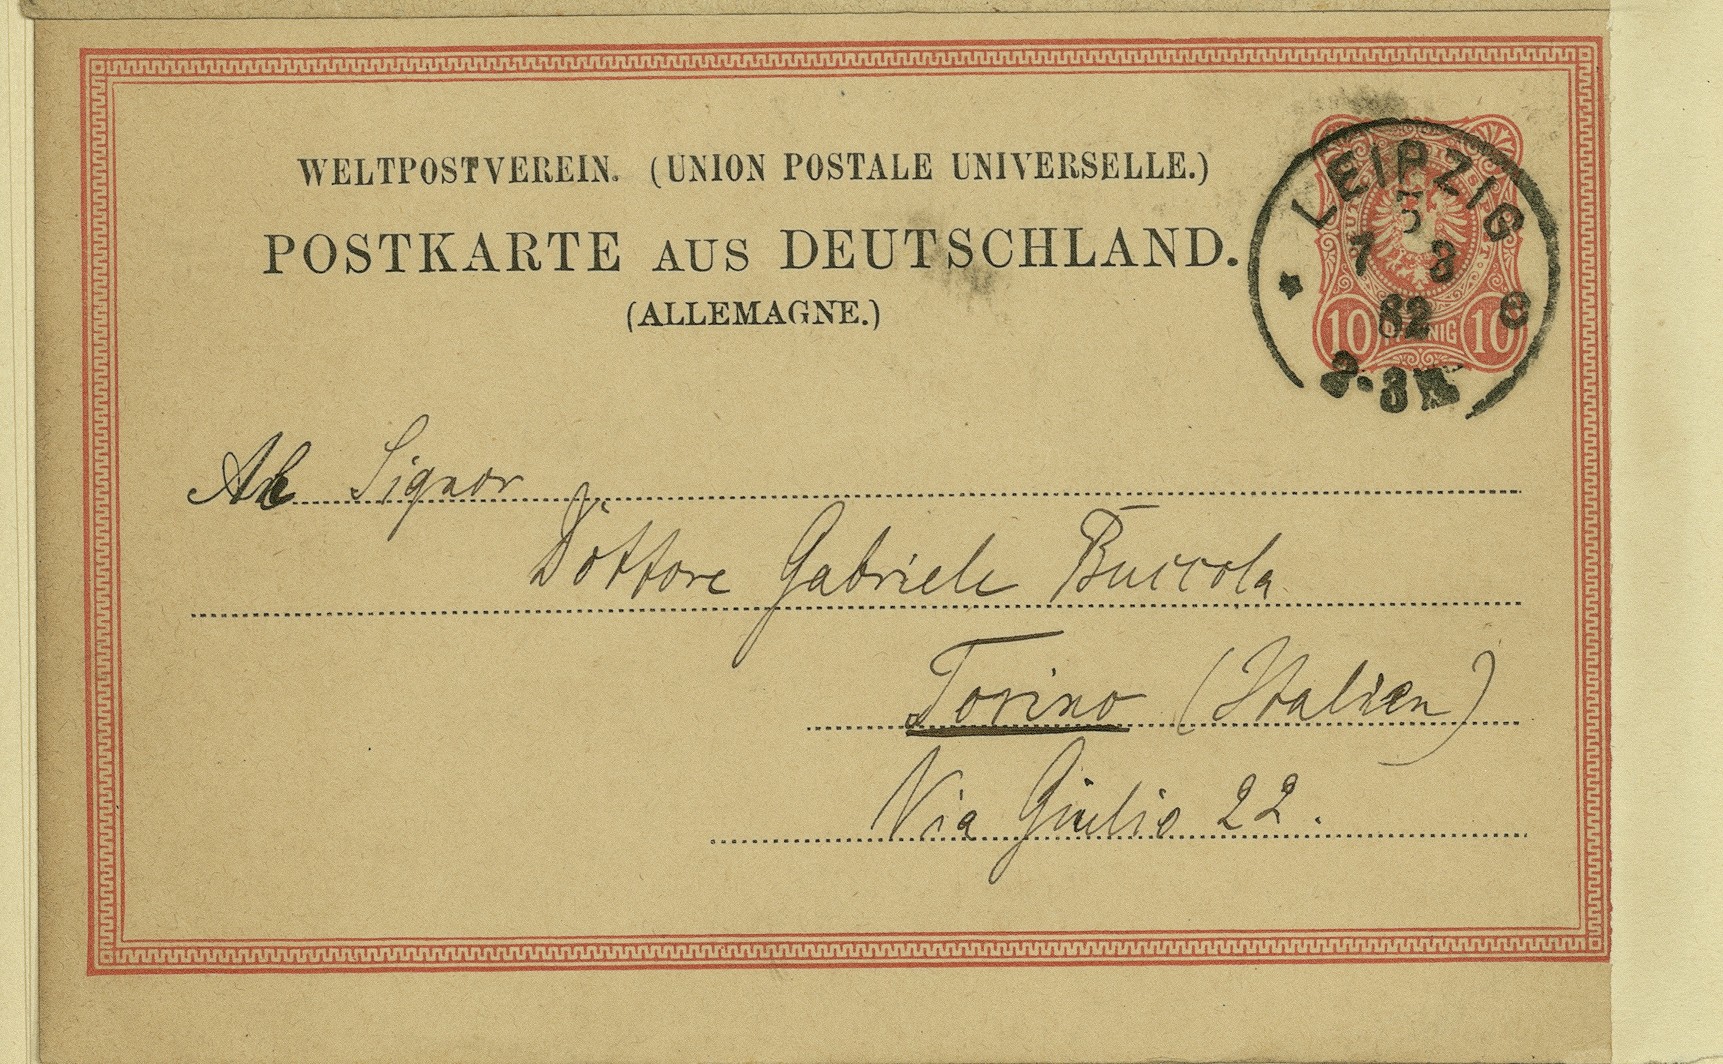 WELTPOSTVEREIN. (UNION POSTALE UNIVERSELLE.)
POSTKARTE AUS DEUTSCHLAND.
(ALLEMAGNE.)
LEIPZIG
5
7 3
82 e
2-3 N
10 PFENNIG 10
Al Signor
Dottore Gabriele Buccola
Torino (Italien)
Via Giulio 22.